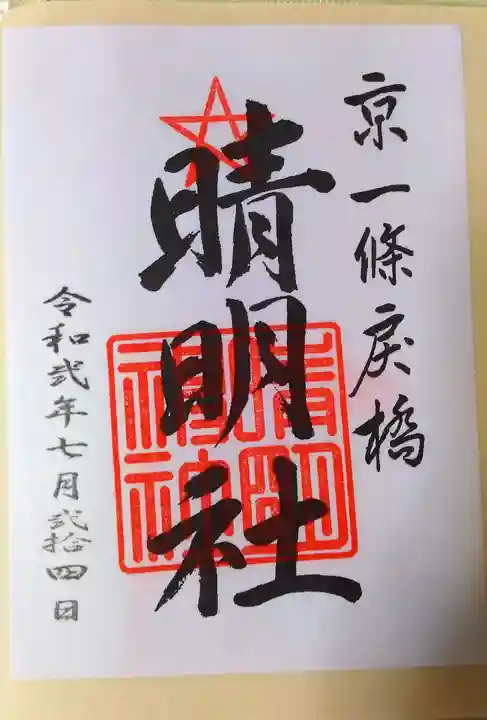 京一條戻橋
晴明社
晴明神社
令和弐年七月弐拾四日